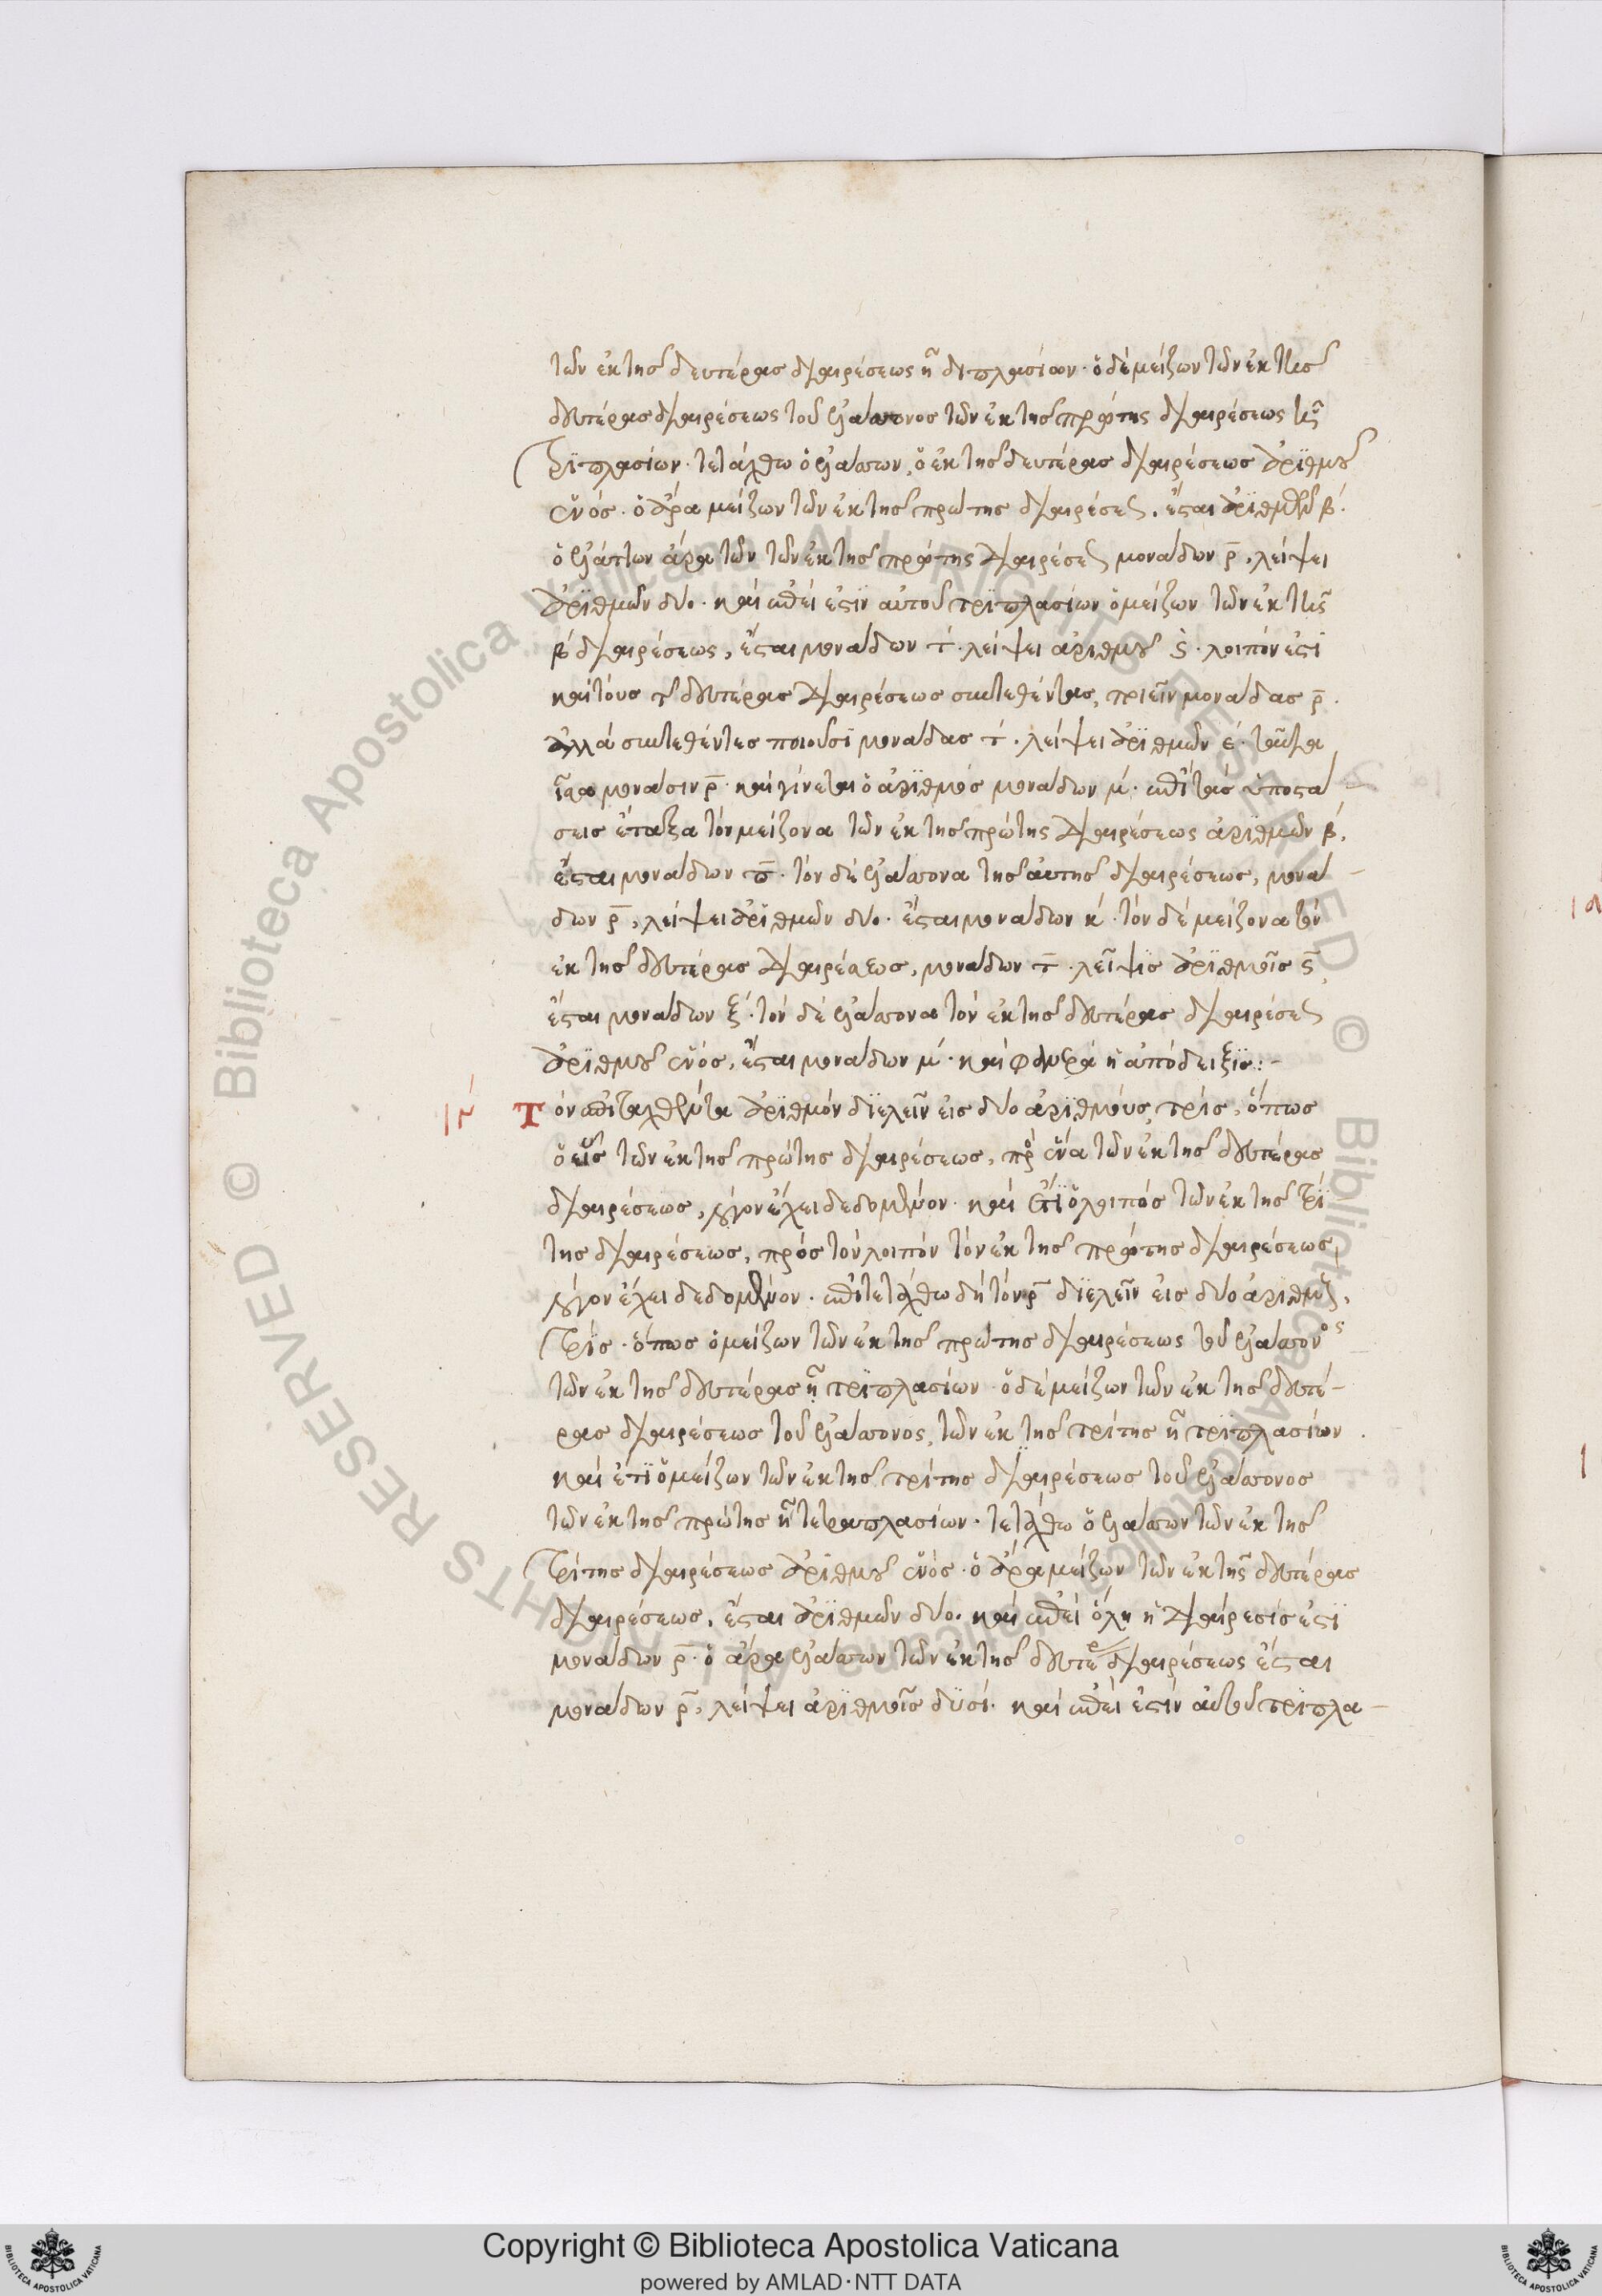 τῶν ἐκ τῆς δευτέρας διαιρέσεως ἦ διπλασίων· ὁ δὲ μείζων τῶν ἐκ τῆς
δευτέρας διαιρέσεως τοῦ ἐλάττονος τῶν ἐκ τῆς πρώτης διαιρέσεως
τριπλασίων· τετάχθω ὁ ἐλάττων, ὁ ἐκ τῆς δευτέρας διαιρέσεως ἀριθμοῦ
ἑνός· ὁ ἄρα μείζων τῶν ἐκ τῆς πρώτης διαιρέσεως, ἔσται ἀριθμῶν β·
ὁ ἐλάττων ἄρα τῶν τῶν ἐκ τῆς πρώτης διαιρέσεως μονάδων ρ, λείψει
ἀριθμῶν δύο· καὶ ἐπεί ἐστιν αὐτοῦ τριπλασίων ὁ μείζων τῶν ἐκ τῆς
β διαιρέσεως, ἔσται μονάδων τ· λείψει ἀριθμοῦ ς· λοιπόν ἐστι
καὶ τοὺς τῆς δευτέρας διαιρέσεως συντεθέντας, ποιεῖν μονάδας ρ·
ἀλλὰ συντεθέντες ποιοῦσι μονάδας τ· λείψει ἀριθμῶν ε· ταῦτα
ἴσα μονάσιν ρ· καὶ γίνεται ὁ ἀριθμός μονάδων μ· ἐπὶ τὰς ὑποστά
σεις ἔταξα τὸν μείζονα τῶν ἐκ τῆς πρώτης διαιρέσεως ἀριθμῶν β,
ἔσται μονάδων π· τὸν δὲ ἐλάττονα τῆς αὐτῆς διαιρέσεως, μονά-
δων ρ, λείψει ἀριθμῶν δύο· ἔσται μονάδων κ· τὸν δὲ μείζονα τὸν
ἐκ τῆς δευτέρας διαιρέσεως, μονάδων τ· λεῖψις ἀριθμοῖς ς,
ἔσται μονάδων ξ· τὸν δὲ ἐλάττονα τὸν ἐκ τῆς δευτέρας διαιρέσεως
ἀριθμοῦ ἑνός, ἔσται μονάδων μ· καὶ φανερὰ ἡ ἀπόδειξις:-
Τὸν ἐπιταχθέντα ἀριθμὸν διελεῖν εἰς δύο ἀριθμοὺς τρίς, ὅπως
ὁ εἷς τῶν ἐκ τῆς πρώτης διαιρέσεως, πρὸς ἕνα τῶν ἐκ τῆς δευτέρας
διαιρέσεως, λόγον ἔχει δεδομένον· καὶ ἔτι ὁ λοιπός τῶν ἐκ τῆς τρί
της διαιρέσεως, πρὸς τὸν λοιπὸν τὸν ἐκ τῆς πρώτης διαιρέσεως,
λόγον ἔχει δεδομένον· ἐπιτετάχθω δὴ τὸν ρ διελεῖν εἰς δύο ἀριθμοὺς,
τρίς· ὅπως ὁ μείζων τῶν ἐκ τῆς πρώτης διαιρέσεως τοῦ ἐλάττονος
τῶν ἐκ τῆς δευτέρας ἦ τριπλασίων· ὁ δὲ μείζων τῶν ἐκ τῆς δευτέ-
ρας διαιρέσεως τοῦ ἐλάττονος, τῶν ἐκ τῆς τρίτης ἦ τριπλασίων
καὶ ἔτι ὁ μείζων τῶν ἐκ τῆς τρίτης διαιρέσεως τοῦ ἐλάττονος
τῶν ἐκ τῆς πρώτης ἦ τετραπλασίων· τετάχθω ὁ ἐλάττων τῶν ἐκ τῆς
τρίτης διαιρέσεως ἀριθμοῦ ἑνός· ὁ ἄρα μείζων τῶν ἐκ τῆς δευτέρας
διαιρέσεως, ἔσται ἀριθμῶν δύο. καὶ ἐπεὶ ὅλη ἡ διαίρεσίς ἐστι
μονάδων ρ· ὁ ἄρα ἐλάττων τῶν ἐκ τῆς δευτέρ διαιρέσεως ἔσται
μονάδων ρ, λείψει ἀριθμοῖς δυσί· καὶ ἐπεί ἐστιν αὐτοῦ τριπλα-